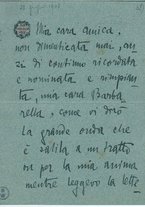 Mia cara amica,
non dimenticata mai, an-
zi di continuo ricordata
e nominata e rimpian-
ta, mia cara Barba
rella, come vi dirò
la grande onda che
è salita a un tratto
su per la mia anima
mentre leggevo la lette